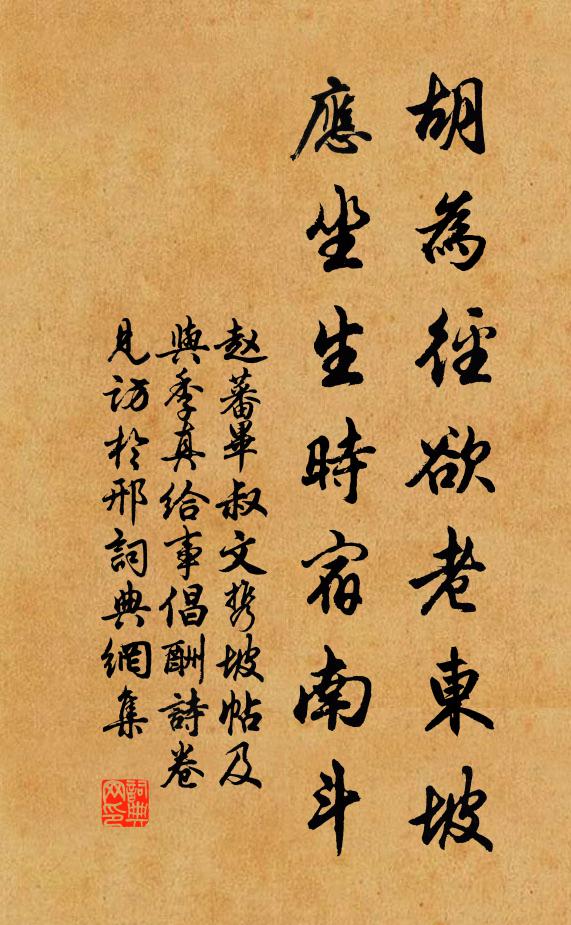 胡為徑欲老東坡
應坐生時宿南斗
赵蕃畢叔文携坡帖及
與季真給事倡酬詩卷
見訪於邢詞典網集
詞典網印